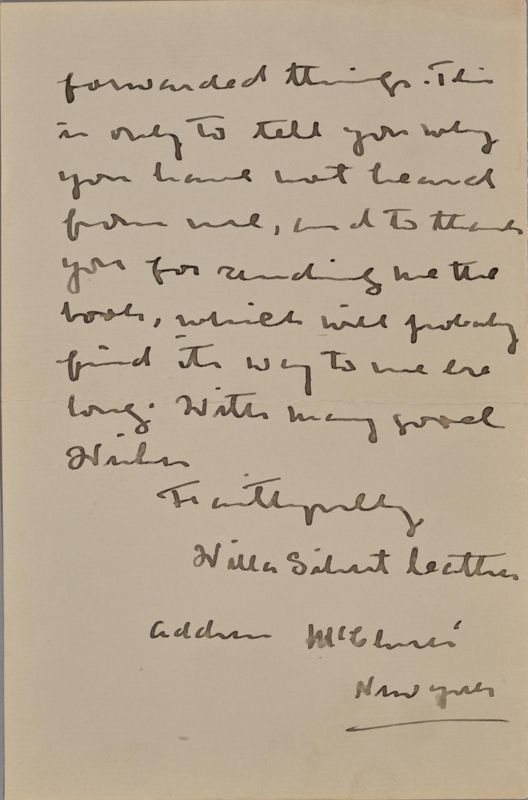 forwarded things. This
is only to tell you why
you have not heard
from me, and to thank
you for sending me the
book, which will probably
find its way to me ere
long. With many good
Wishes
Faithfully
Willa Sibert Cather
Address McClure's
New York